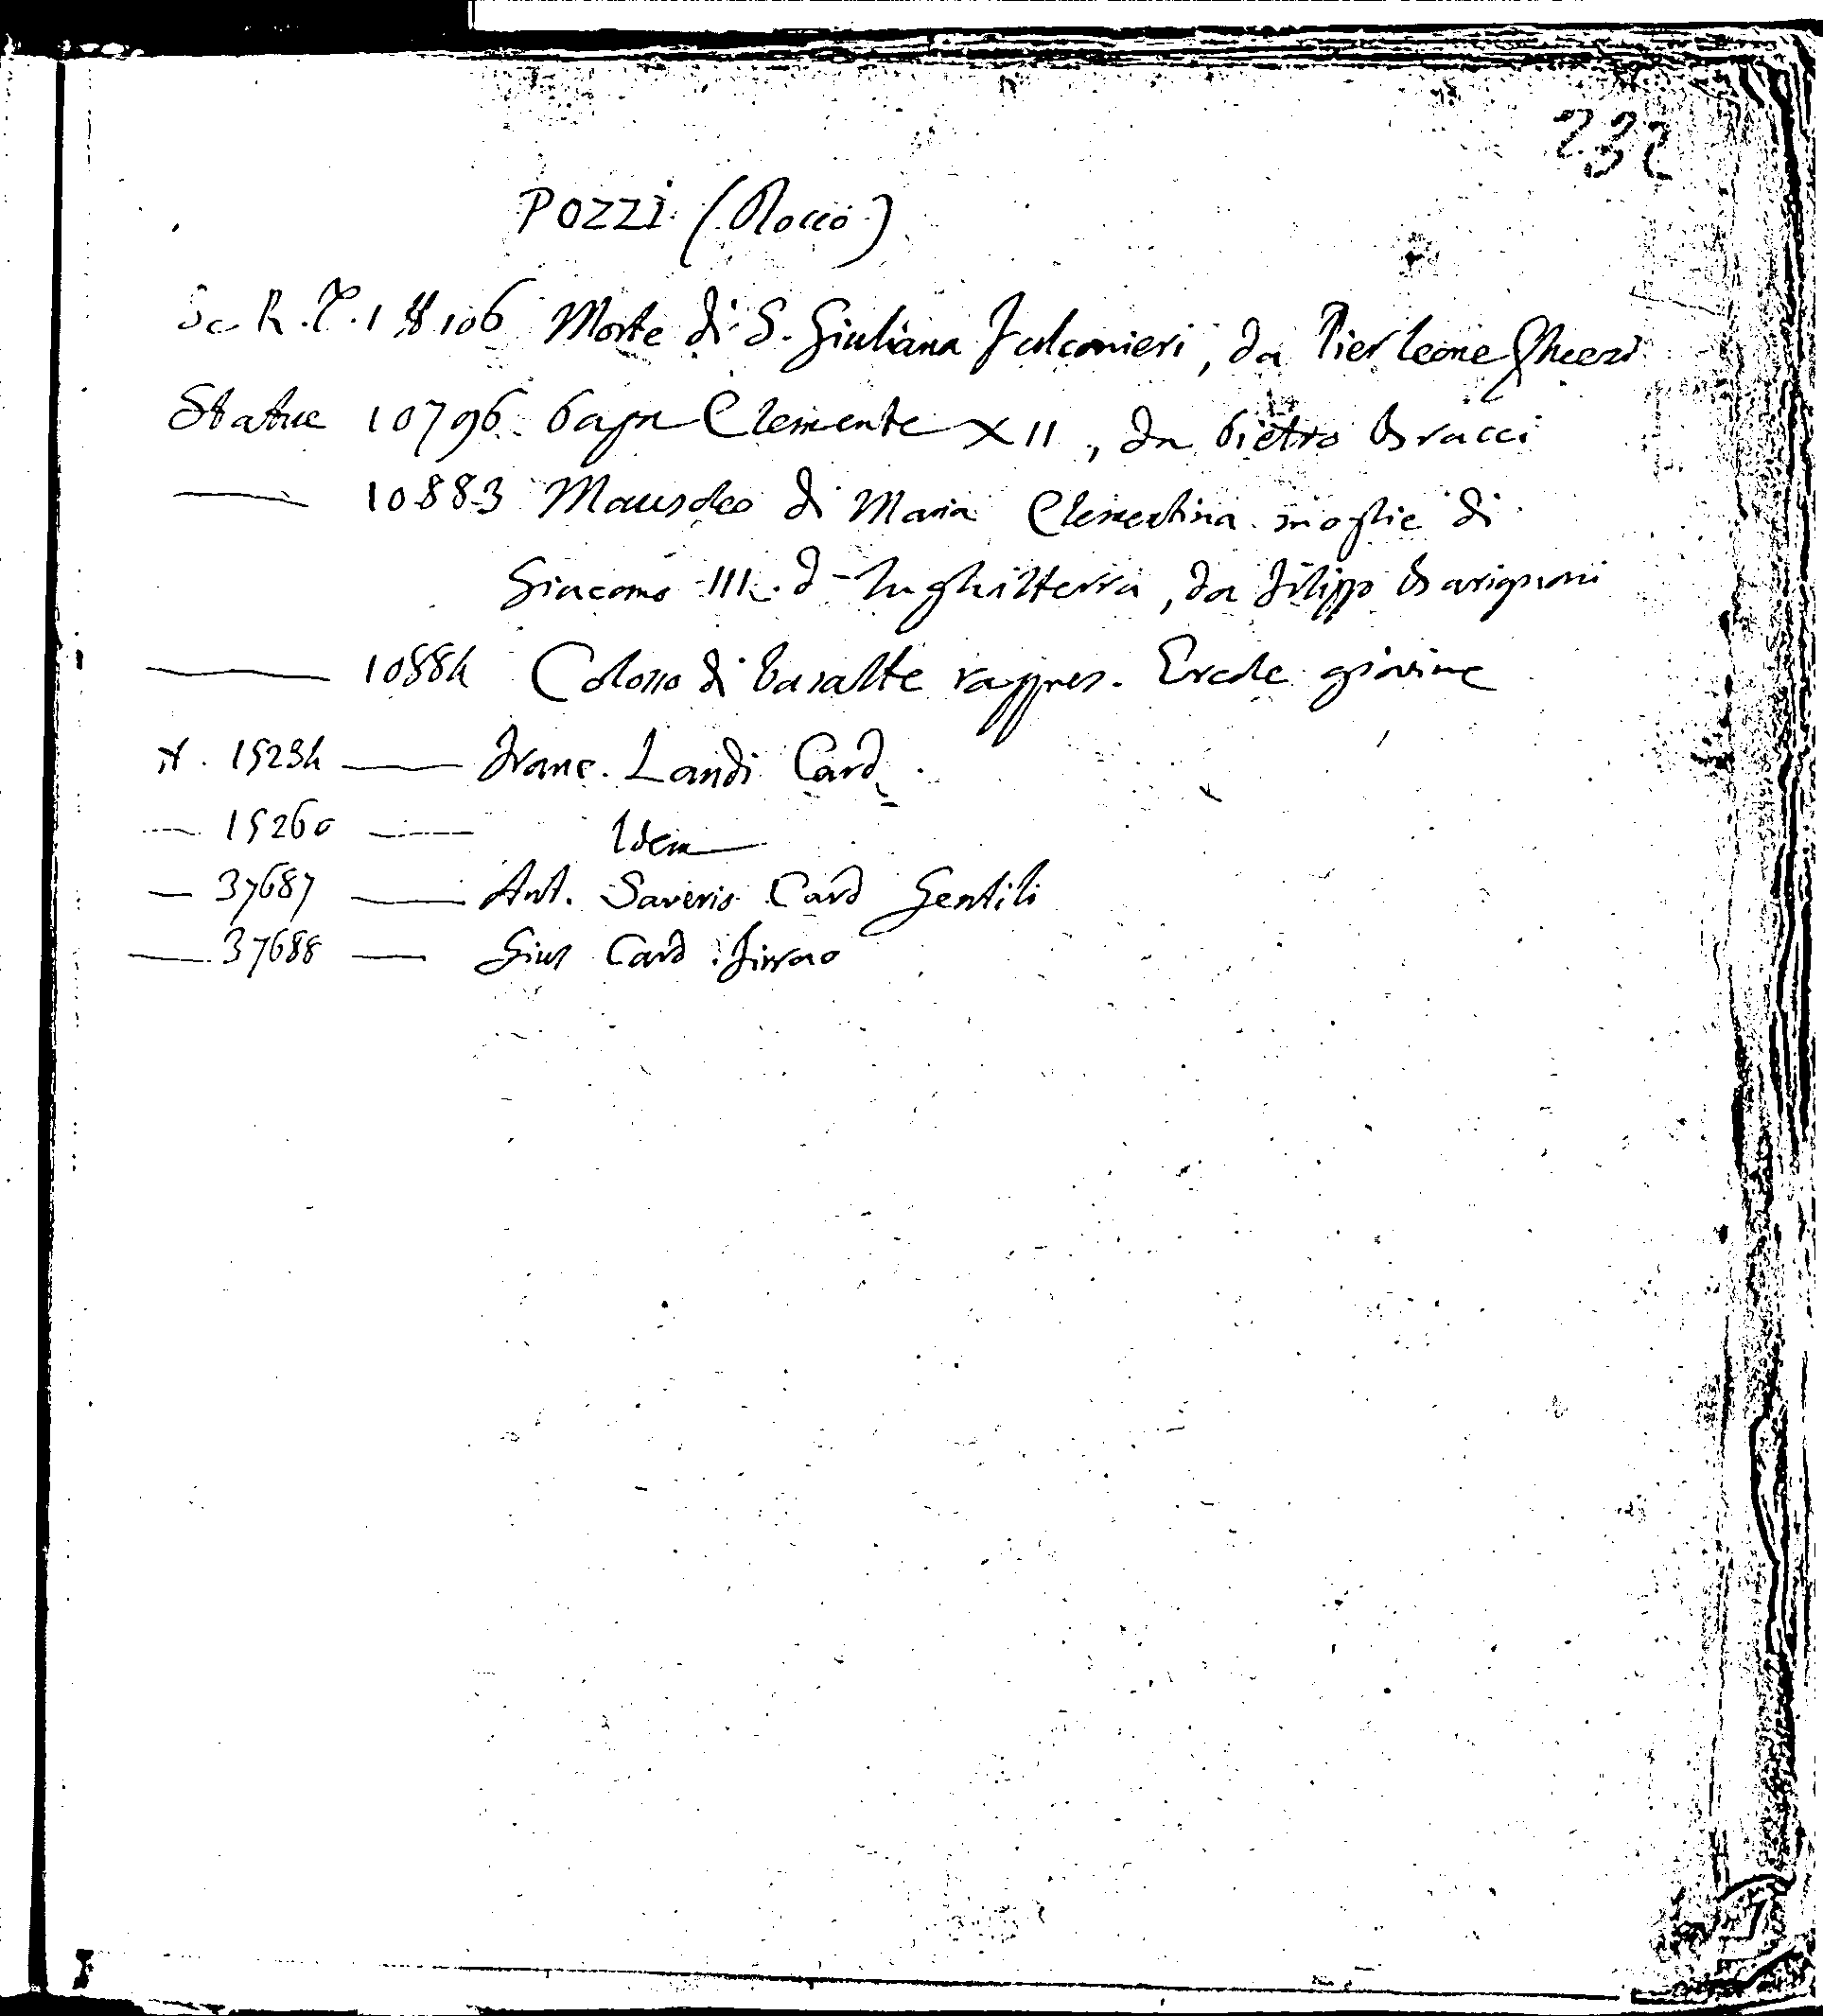 232
POZZI (Rocco)
Sc R. T. 1 # 106 Morte di S. Giuliana Falconieri, da Pier Leone Ghezzi
Statue 10796 Papa Clemente XII, da Pietro Bracci
—— 10883 Mausoleo di Maria Clementina moglie di
Giacomo III. d'Inghilterra, da Filippo Barigioni
—— 10884 Colosso di basalte rappres. Ercole giovine
rt. 15234 —— Franc. Landi Card.
—— 15260 —— Idem
— 37687 —— Ant. Saverio Card Gentili
—— 37688 — Gius Card Firrao